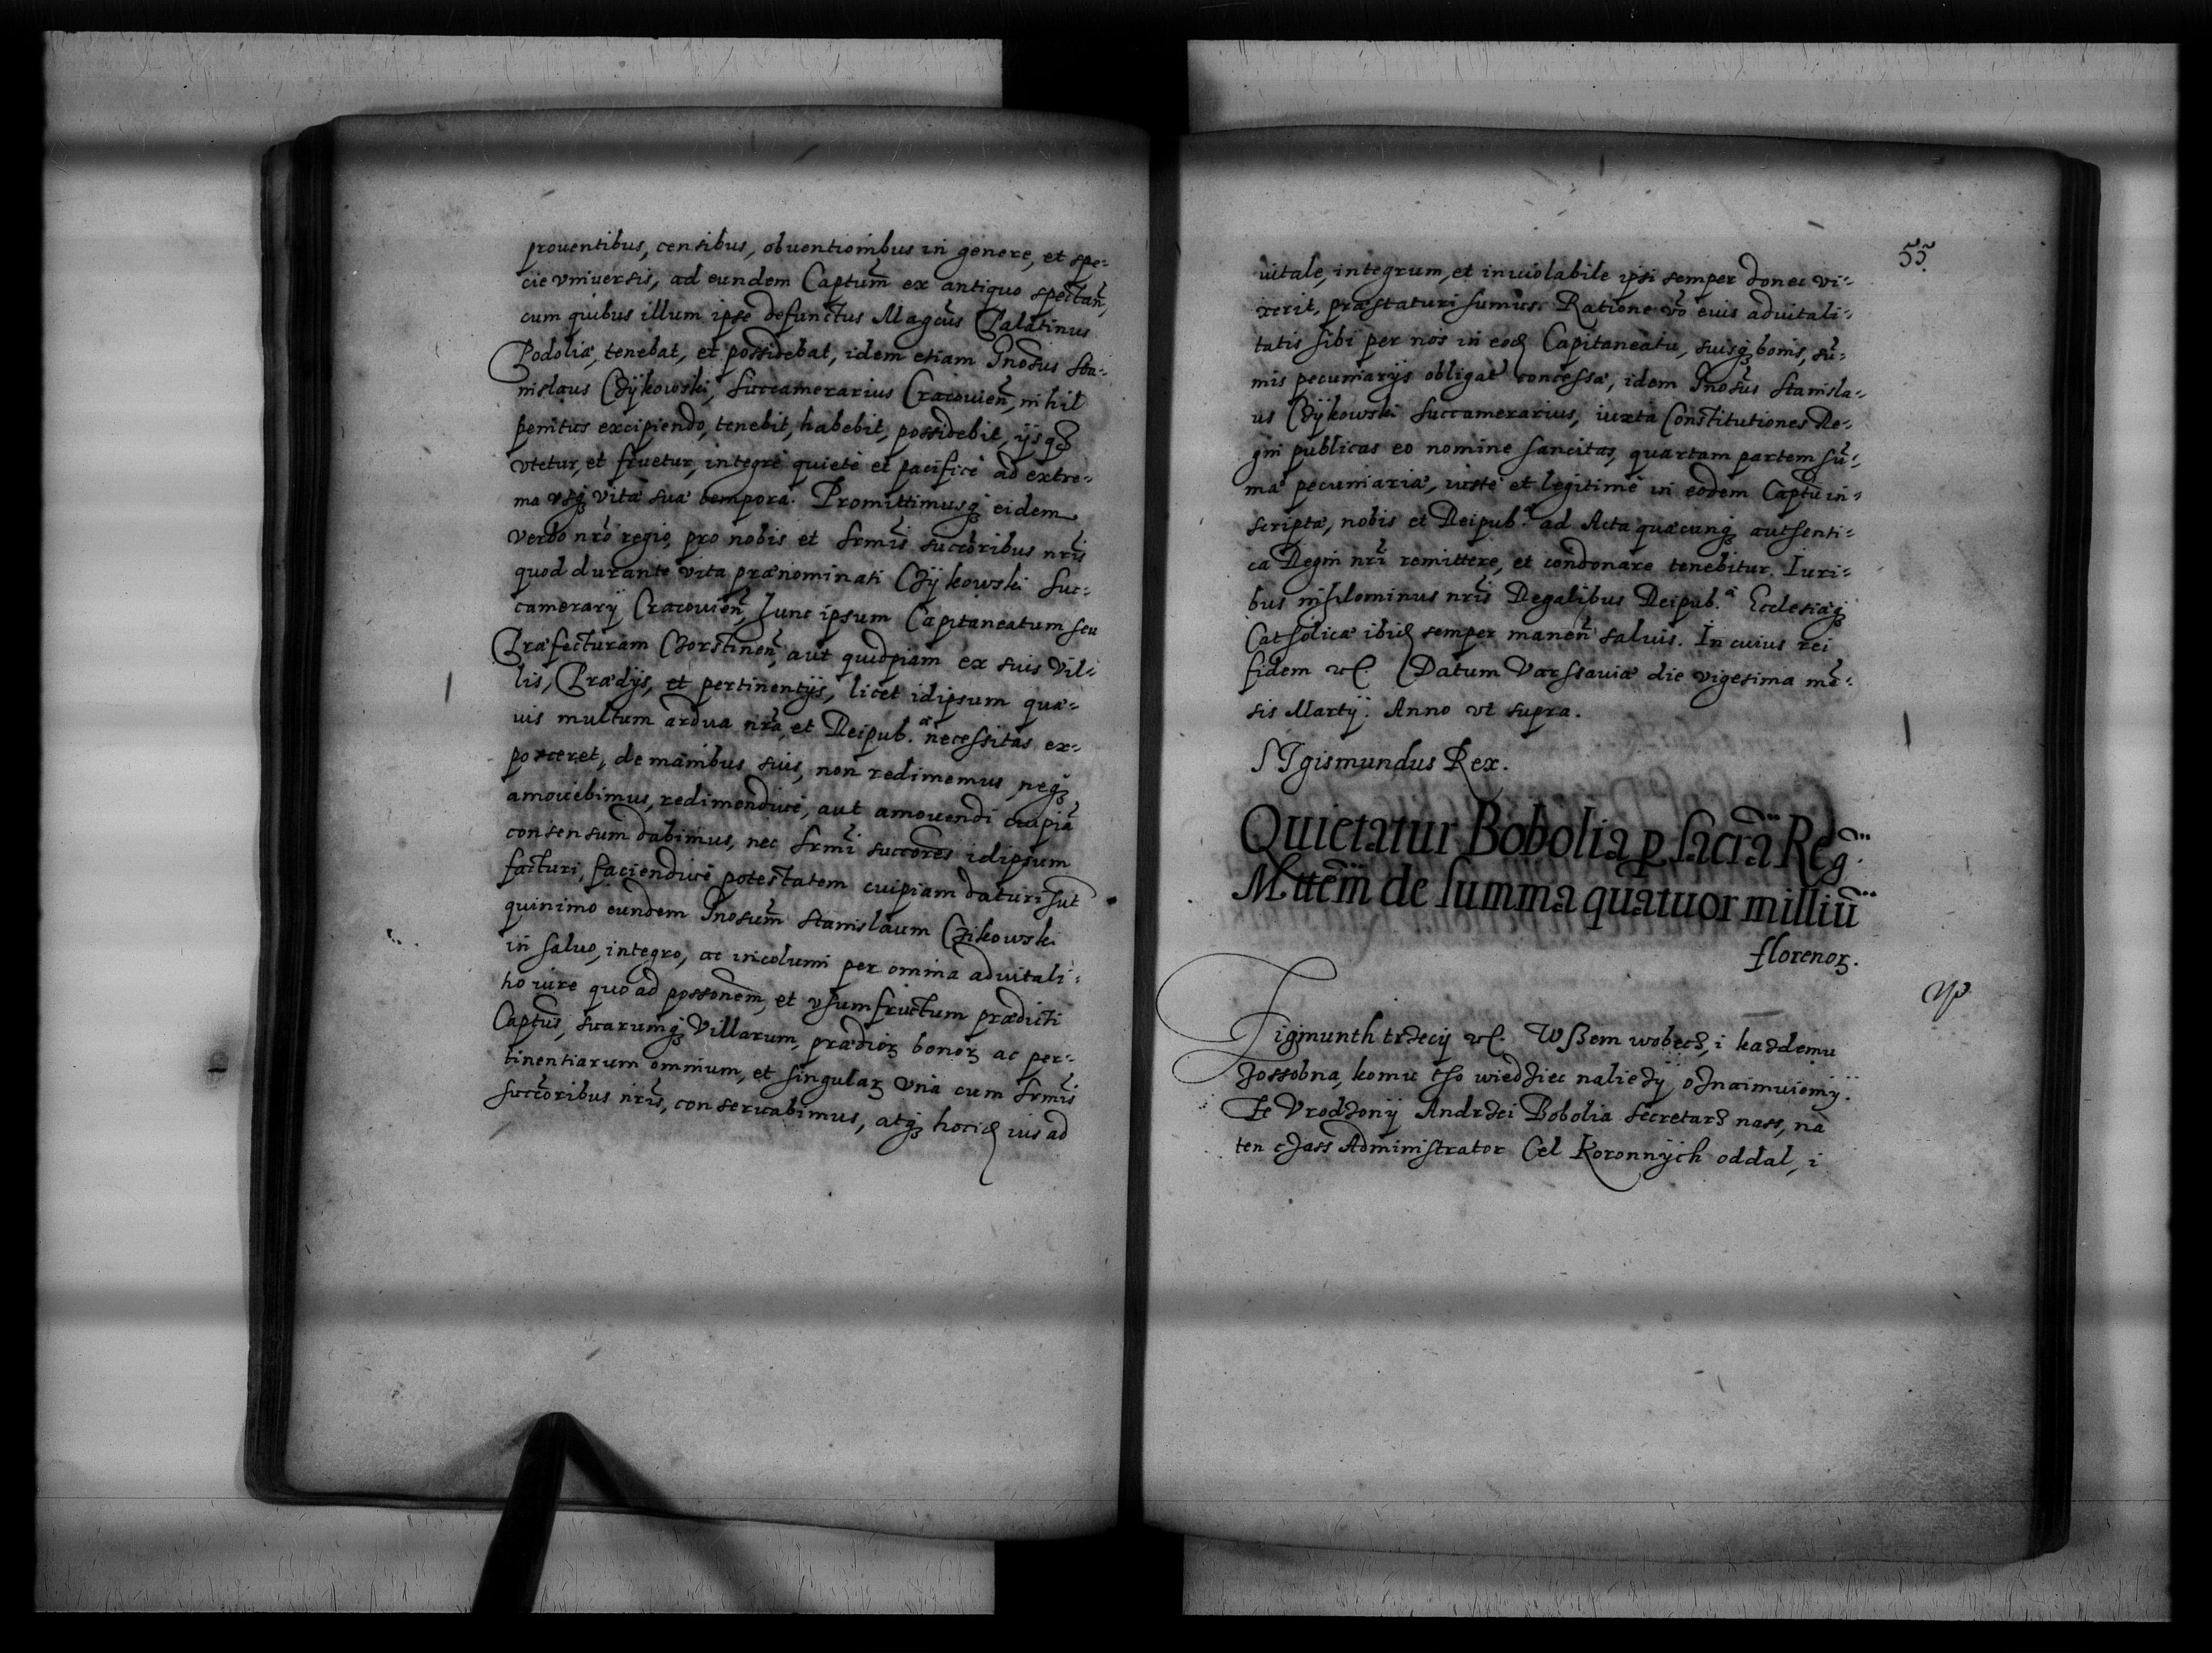 prouentibus, censibus, obuentionibus in genere, et spe-
cie vniuersis, ad eundem Captum̃ ex antiquo spectañ,
cum quibus illum ipse defunctus Magcus̃ Palatinus
Podoliæ, tenebat, et possidebat, idem etiam Gnosus̃ Sta-
nislaus Czÿkowski, Succamerarius Cracouień, nihil
penitus excipiendo, tenebit, habebit, possidebit, ijsq3
vtetur, et fruetur, integrè quietè et pacificè ad extre-
ma vsq3 vitæ suæ tempora. Promittimusq3 eidem
verbo nr̃o regio, pro nobis et Srmis̃ succoribus̃ nris̃
quod durante vita prænominati Czÿkowski Suc-
camerarij Cracouień, hunc ipsum Capitaneatum seu
Præfecturam Czorstineñ, aut quidpiam ex suis Vil-
lis, Prædijs, et pertinentijs, licet idipsum quæ-
uis multum ardua nr̃a, et Reipub.ᵃ necessitas ex-
posceret, de manibus suis, non redimemus, neq3
amouebimus, redimendiuè, aut amouendi cuipiã
consensum dabimus, nec Srmi̇̃ succores̃ idipsum
facturi, faciendiuè potestatem cuipiam daturi sut̃
quinimo eundem Gnosum̃ Stanislaum Czikowski
in saluo, integro, ac incolumi per omnia aduitali-
tio iure quo ad possonem̃, et vsumfructum prædicti
Captus̃, suarumq3 Villarum, prædioꝝ bonoꝝ ac per-
tinentiarum omnium, et singulaꝝ vnà cum Srmis̃
succoribus̃ nris̃, conseruabimus, atq3 hocid̨ ius ad
55.
uitale, integrum, et inuiolabile ipsi semper donec vi-
xerit, præstaturi sumus. Ratione vo̊ euis aduitali-
tatis sibi per nos in eod̨ Capitaneatu, suisq3 bonis, sũ-
mis pecuniarijs obligat̃ concessæ, idem Gnosus̃ Stanisla-
us Czÿkowski Succamerarius, iuxta Constitutiones Re-
gni publicas eo nomine sancitas, quartam partem sũ-
mæ pecuniariæ, iustè et legitimè in eodem Captu̇̃ in-
scriptæ, nobis et Reipub.ᵃ ad Acta quæcunq3 authenti-
ca Regni nri̇̃ remittere, et condonare tenebitur. Iuri-
bus nihilominus nris̃ Regalibus Reipub.ᵃ Ecclesiæq3
Catholicæ ibid̨ semper maneñ saluis. In cuius rei
fidem etc. Datum Varssauiæ die vigesima mẽ-
sis Martij. Anno vt supra.
SIgismundus Rex.
Quietatur Bobolia ꝑ sacrã Reg̃.
Mttem̃ de summa quatuor milliũ
florenoꝝ.
Zigmunth trzecij etc. Wßem wobecz, i kazdemu
zossobna, komu tho wiedziec naliezÿ oznaimuiemÿ.
Ze Vrodzonÿ Andrzei Bobolia secretarz nass, na
ten czass Administrator Cel Koronnÿch oddal, i